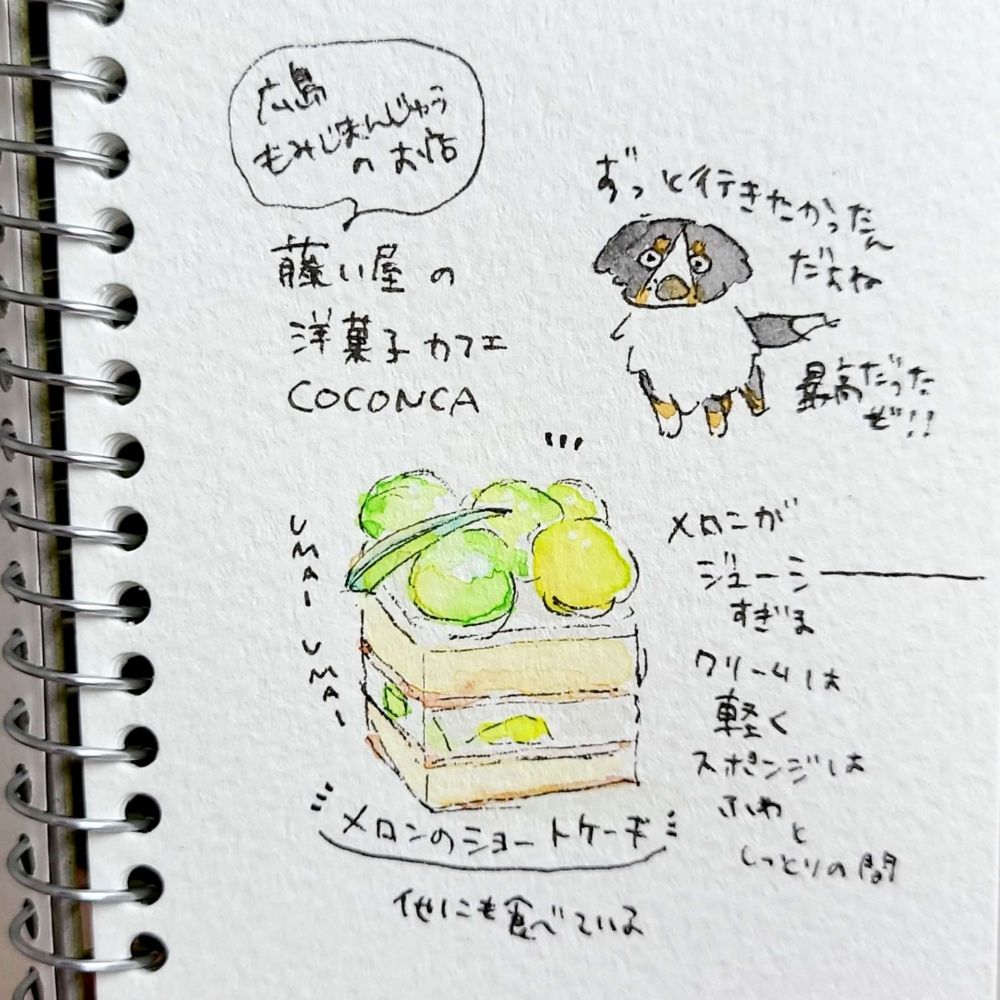 広島
もみじまんじゅう
のお店
藤い屋の
洋菓子カフェ
COCONCA
ずっと行きたかったん
だよね
最高だった
ぞ!!
UMAI UMAI
メロンが
ジューシー
すぎま
クリームは
軽く
スポンジは
ふわ
と
しっとりの間
メロンのショートケーキ
他にも食べている